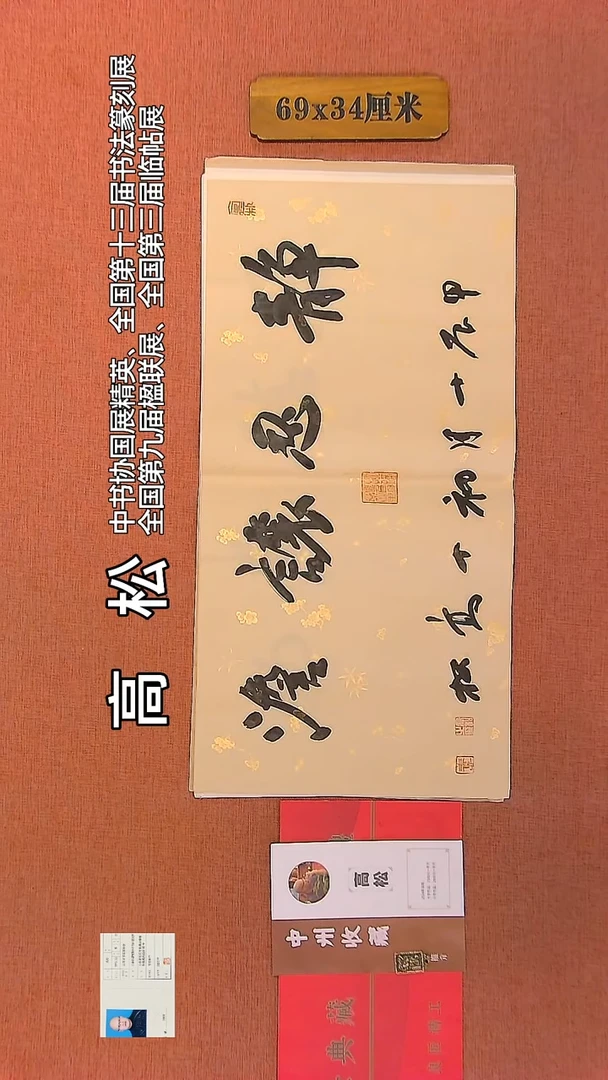 69x34厘米
高 松
中书协国展精英、全国第十三届书法篆刻展
全国第九届楹联展、全国第三届临帖展
静忍讓澹
甲辰十月初
高松
高松
中州收藏
典藏